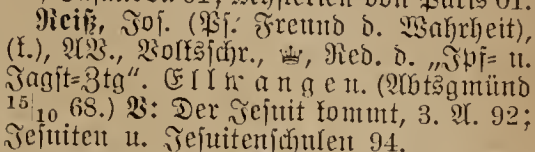 Reiß, Jos. (Ps: Freund d. Wahrheit),
(k.), AV., Volksschr., ♛, Red. d. „Ipf= u.
Jagst=Ztg“. Ellwangen. (Abtsgmünd
15/10 68.) V: Der Jesuit kommt, 3. A. 92;
Jesuiten u. Jesuitenschulen 94.